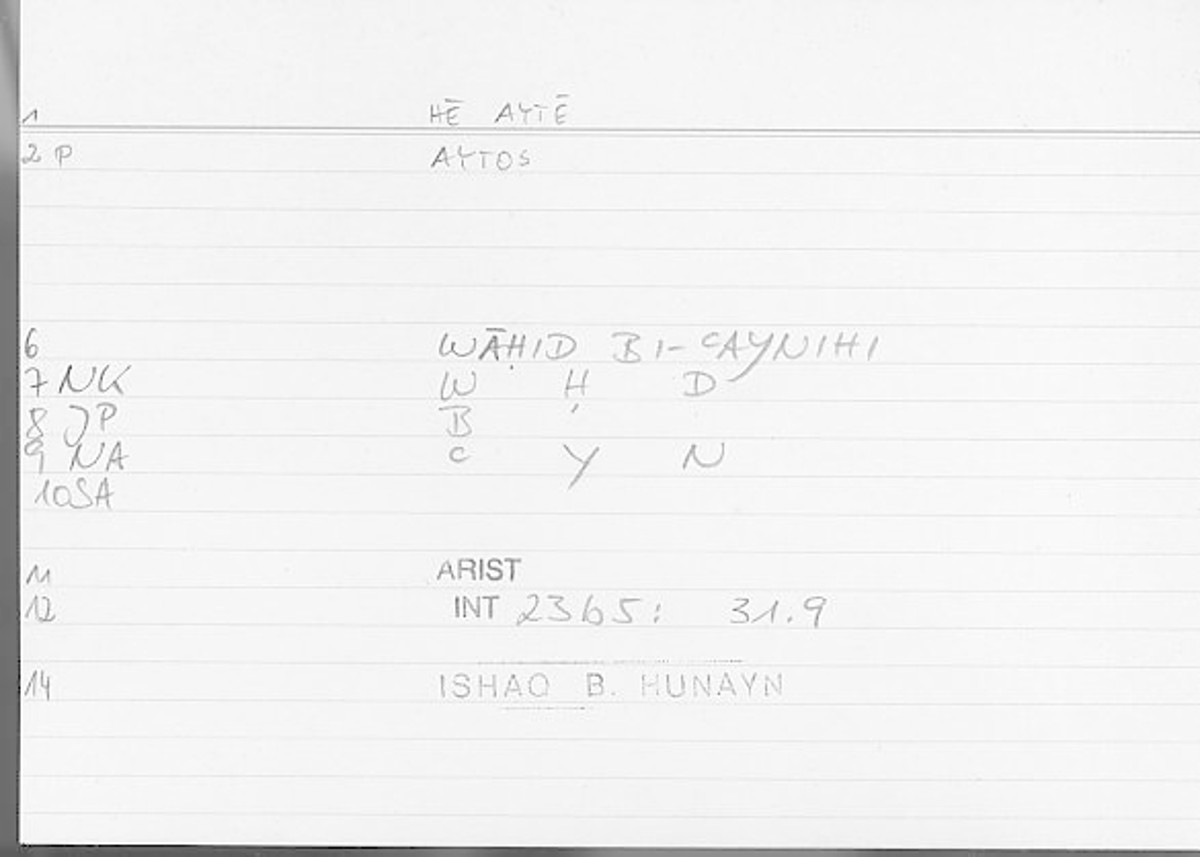 1 HĒ AYTĒ
2 P AYTOS
6 WĀḤID BI-ᶜAYNIHI
7 NK W Ḥ D
8 JP B
9 NA ᶜ Y N
10 SA
11 ARIST
12 INT 2365: 31.9
14 ISHAQ B. HUNAYN